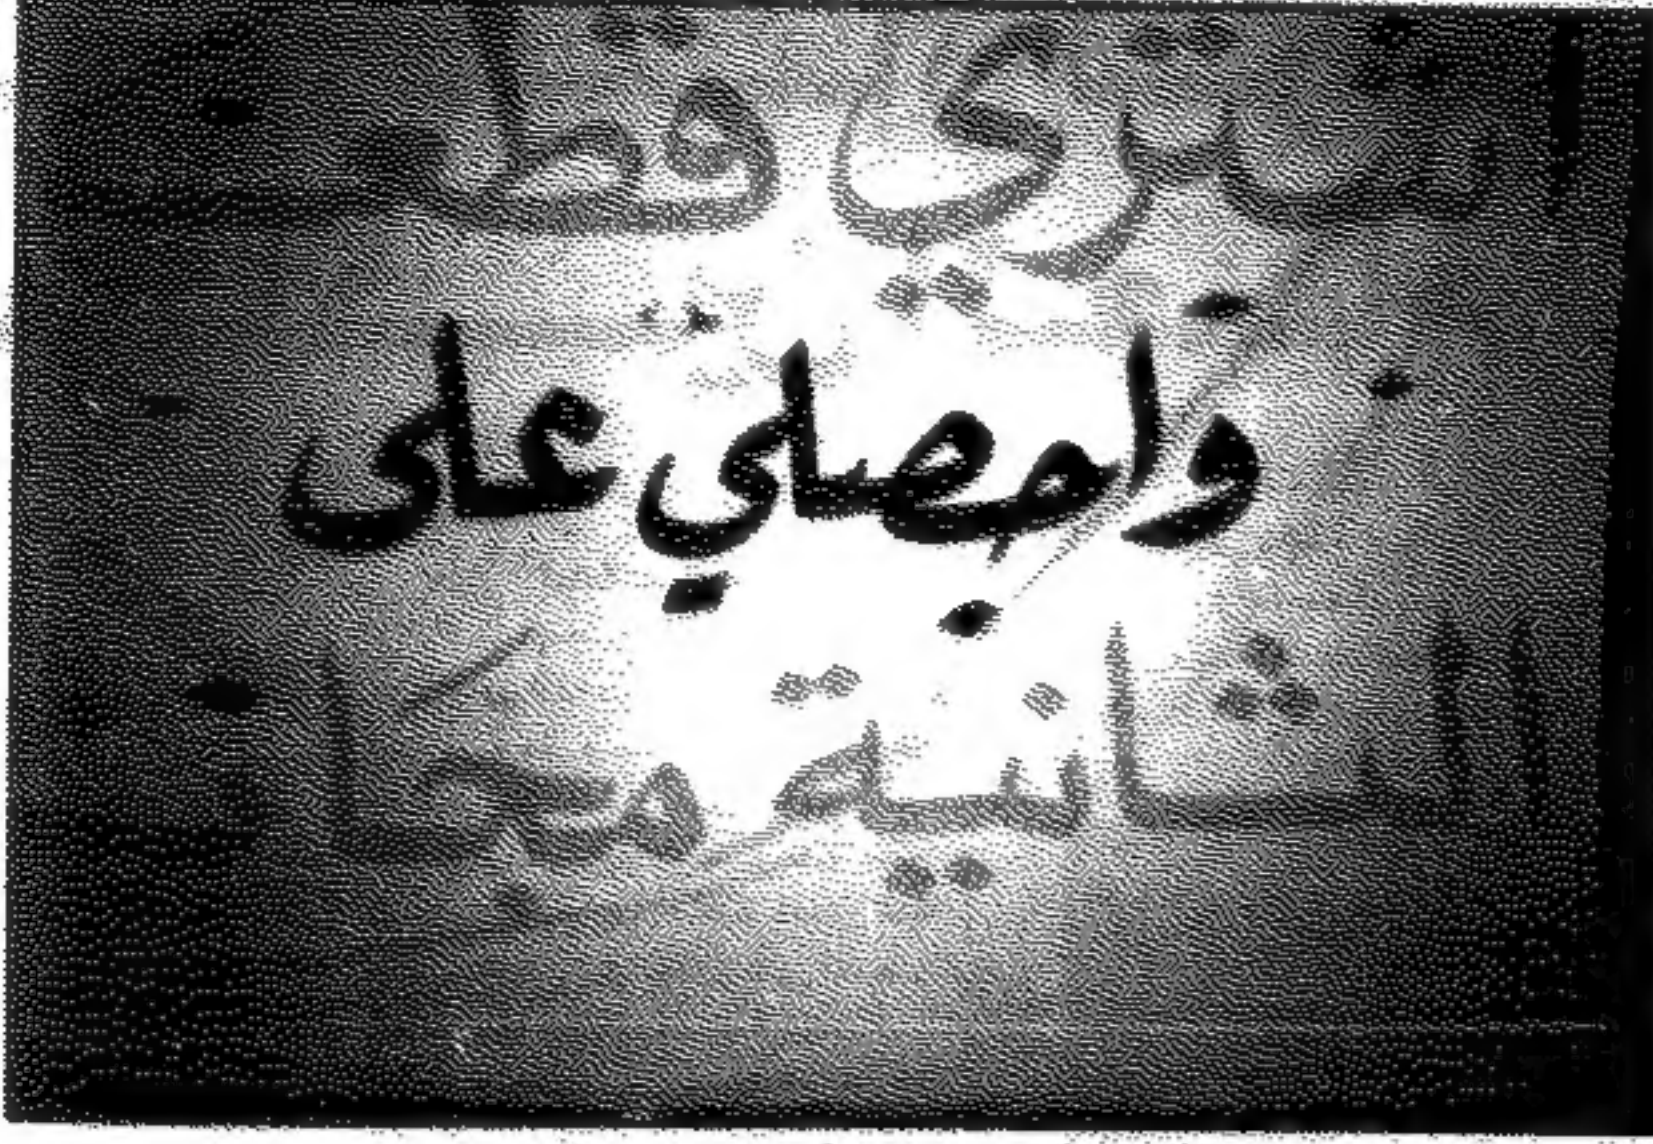 اشتري قطعة
واحصلي على
الثانية مجانا